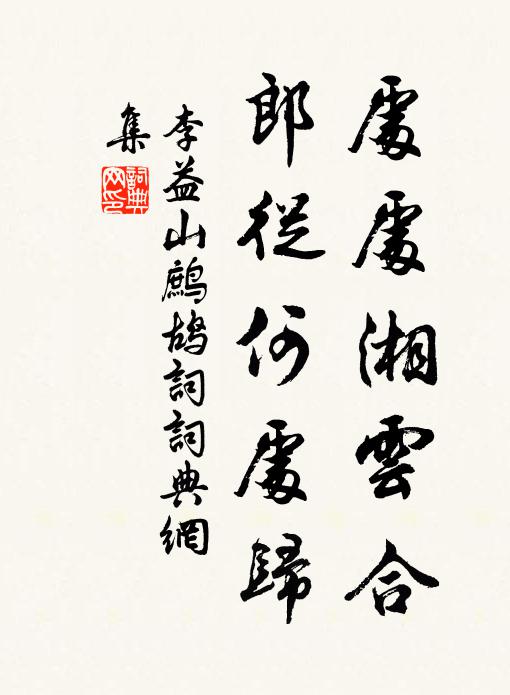 處處湘雲合
郎從何處歸
李益山鷓鴣詞詞典網
集
詞典網印